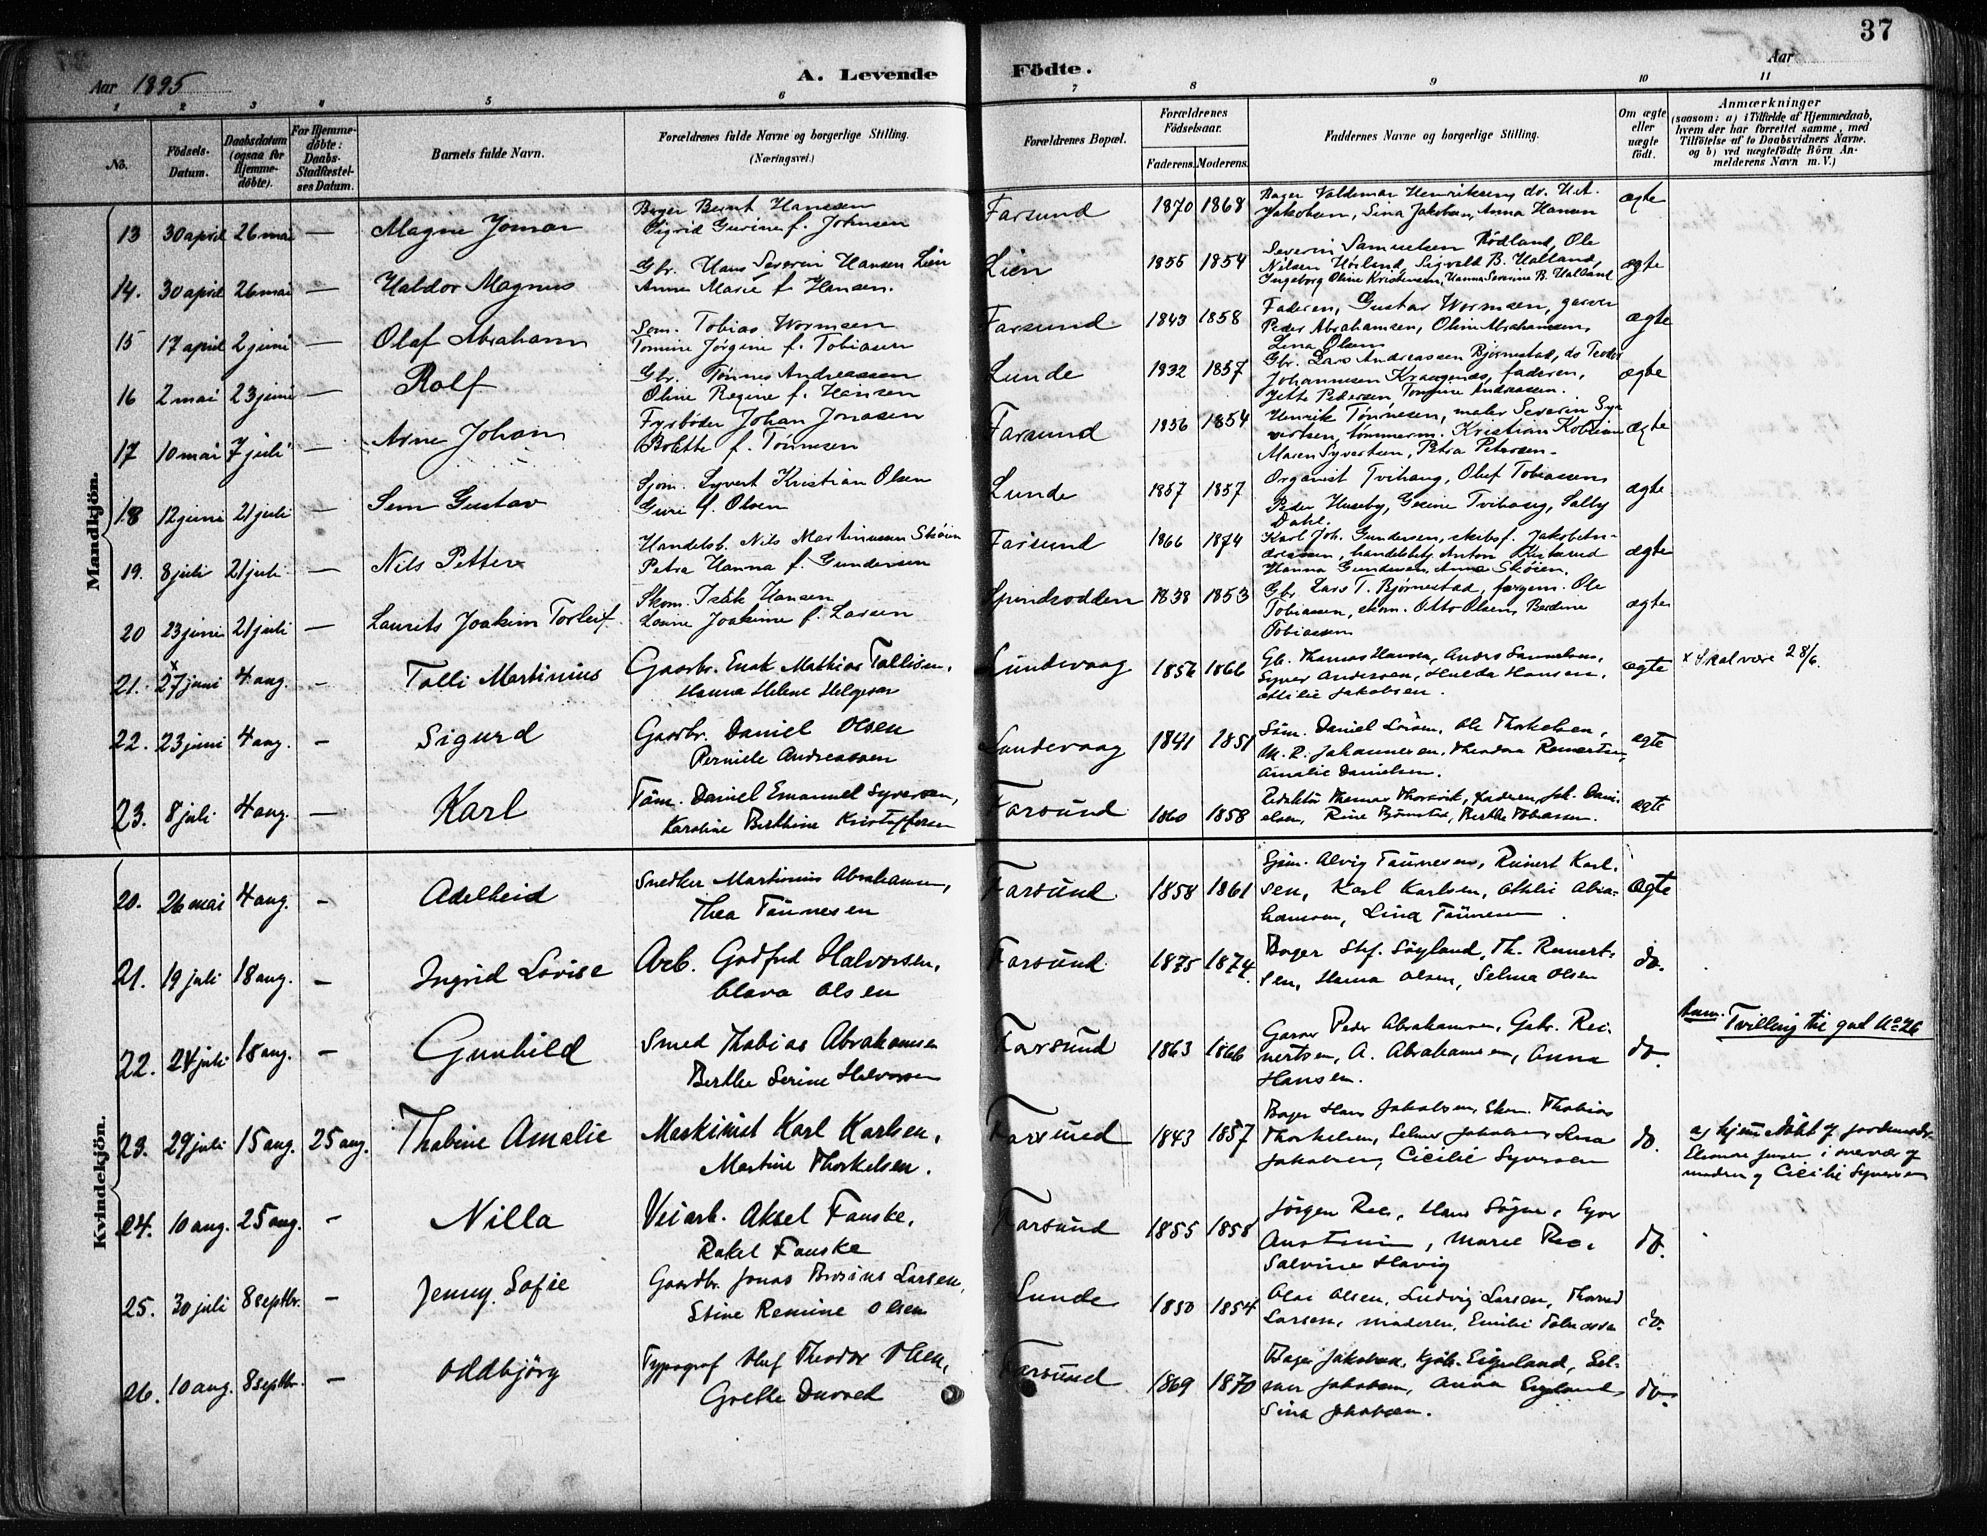 37
Aar 1895
A. Levende
Födte.
Aar
1 2 3 4 5 6 7 8 9 10 11
No.
Födsels-Datum.
Daabsdatum (ogsaa for Hjemme-døbte).
For Hjemme-døbte: Daabs-Stadfæstel-ses Datum.
Barnets fulde Navn.
Forældrenes fulde Navne og borgerlige Stilling. (Næringsvei.)
Forældrenes Bopæl.
Forældrenes Fødselsaar.
Faderens. Moderens.
Faddernes Navne og borgerlige Stilling.
Om ægte eller uægte født.
Anmærkninger (saasom: a) i Tilfælde af Hjemmedaab, hvem der har forrettet samme, med Tilføielse af to Daabsvidners Navne, og b) ved uægtefödte Börn Anmelderens Navn m. V.)
Mandkjön.
13 30 april 26 mai — Magne Jomar
Bager Bernt Hansen
Sigrid Gurine f. Johnsen
Farsund 1870 1868
Bager Valdemar Henriksen, do. H.A.
Jakobsen, Sina Jakobsen, Anna Hansen
ægte
14. 30 april 26 mai — Haldor Magnus
Gbr. Hans Severin Hansen Lien
Anne Marie f. Hansen.
Lien 1855 1854
Severin Samuelsen Rødland, Ole
Nilsen Hørland, Sigvald B. Halland,
Ingeborg Oline Kristensen, Hanna Severine B. Halland
ægte
15 17 april 2 juni — Olaf Abraham
Søm. Tobias Wormsen
Tomine Jørgine f. Tobiasen
Farsund 1843 1858
Faderen, Gustav Wormsen, garver
Peder Abrahamsen, Oline Abrahamsen,
Lena Olsen
ægte
16 2 mai 23 juni — Rolf
Gbr. Tønnes Andreassen
Oline Regine f. Hansen
Lunde 1832 1857
Gbr. Lars Andreassen Bjørnestad, do Teodor
Johannesen Kraagenes, faderen,
Jette Pedersen, Tomine Andreasen.
ægte
17 10 mai 7 juli — Arne Johan
Fyrbøder Johan Jonasen
Bolette f. Tønnesen
Farsund 1856 1854
Henrik Tønnesen, maler Severin Syvertsen, tømmerm. Kristian
Maren Syvertsen, Petra Petersen.
ægte
18 12 juni 21 juli — Sem Gustav
Sjøm. Syvert Kristian Olsen
Guri f. Olsen
Lunde 1857 1857
Organist Tvihaug, Oluf Tobiassen,
Peder Huseby, Gesine Tvihaug, Sally
Dahl.
ægte
19. 8 juli 21 juli. — Nils Petter
Handelsb. Nils Martinussen Skøien
Petra Hanna f. Gundersen
Farsund 1866 1874
Karl Joh. Gundersen, skibsf. Jakob
handelsbtj. Anton
Hanna Gundersen, Anna Skøien.
ægte
20 23 juni 21 juli — Laurits Joakim Torleif.
Skom. Isak Hansen
Laurie Joakime f. Larsen
Spindsodden 1838 1853
Gbr. Lars T. Bjørnestad, færgem. Ole
Tobiassen, skom. Otto Olsen, Berdine
Tobiassen
ægte
21. x 27 juni 4 aug. — Tolli Martinius
Gaardbr. Enok Mathias Tollisen,
Hanna Helene Helgesen
Lundevaag 1856 1866
Gb. Thomas Hansen, Anders Samuelsen,
Syver Andersen, Hulda Hansen,
Ottilie Jakobsen.
ægte
x Skal være 28/6.
22. 23 juni 4 aug. — Sigurd
Gaardbr. Daniel Olsen
Pernille Andreassen
Lundevaag 1841 1851
Søm. Daniel Larsen, Ole Thorkelsen,
M. R. Johannesen, Theodora Reinertsen,
Amalie Danielsen.
ægte
23. 8 juli. 4 aug. — Karl
Töm. Daniel Emanuel Syversen,
Karoline Berthine Kristoffersen
Farsund 1860 1858
Redaktör Thomas Thorsvik, faderen, Jak. Danielsen, Rine Bjørnstad, Berthe Tobiassen.
ægte
Kvindekjön.
20. 26 mai 4 aug. — Adelheid
Snedker Martinius Abrahamsen,
Thea Tönnesen
Farsund 1858 1861
Sjöm. Alvig Tönnesen, Reinert Karlsen, Karl Karlsen, Othilie Abrahamsen, Lina Tönnesen.
ægte
21. 19 juli 18 aug. — Ingrid Lovise
Arb. Godfred Halvorsen,
Clara Olsen
Farsund 1875 1874.
Bager Stef. Söyland, Th. Reinertsen, Hanna Olsen, Selma Olsen
do.
22. 24 juli 18 aug. — Gunhild
Smed Thobias Abrahamsen
Berthe Serine Halvorsen
Farsund 1863 1866
Garver Peder Abrahamsen, Gabr. Reinertsen, A. Abrahamsen, Anna
Hansen.
do.
Anm. Tvilling til gud No 26
23. 29 juli 15 aug. 25 aug. Thobine Amalie
Maskinist Karl Karlsen,
Martine Thorkelsen.
Farsund 1843 1857
Bager Hans Jakobsen, Skom. Thobias
Thorkelsen, Selma Jakobsen, Lina
Jakobsen, Cicilie Syversen
do.
a) hjemmedöbt af jordemoder
Eleonore Jensen i nærvær af
moderen og Cicilie Syversen
24. 10 aug. 25 aug. — Nilla
Veiarb. Aksel Fauske,
Rakel Fauske
Farsund 1855 1858
Jörgen Ree, Hans Sögne, Syver
Marie Ree,
Salvine Havig
do.
25. 30 juli 8 septbr. — Jenny Sofie
Gaardbr. Jonas Larsen,
Stine Remine Olsen
Lunde 1850 1854
Olai Olsen, Ludvig Larsen, Thorvald
Larsen, moderen, Emilie
do.
26. 10 aug. 8 septbr. — Oddbjörg
Typograf Oluf Theodor Olsen,
Grethe Duvved
Farsund 1869 1870
Bager Jakobsen, Kjöb. Eigeland, Selmer Jakobsen, Anna Eigeland,
Sina Jakobsen.
do.